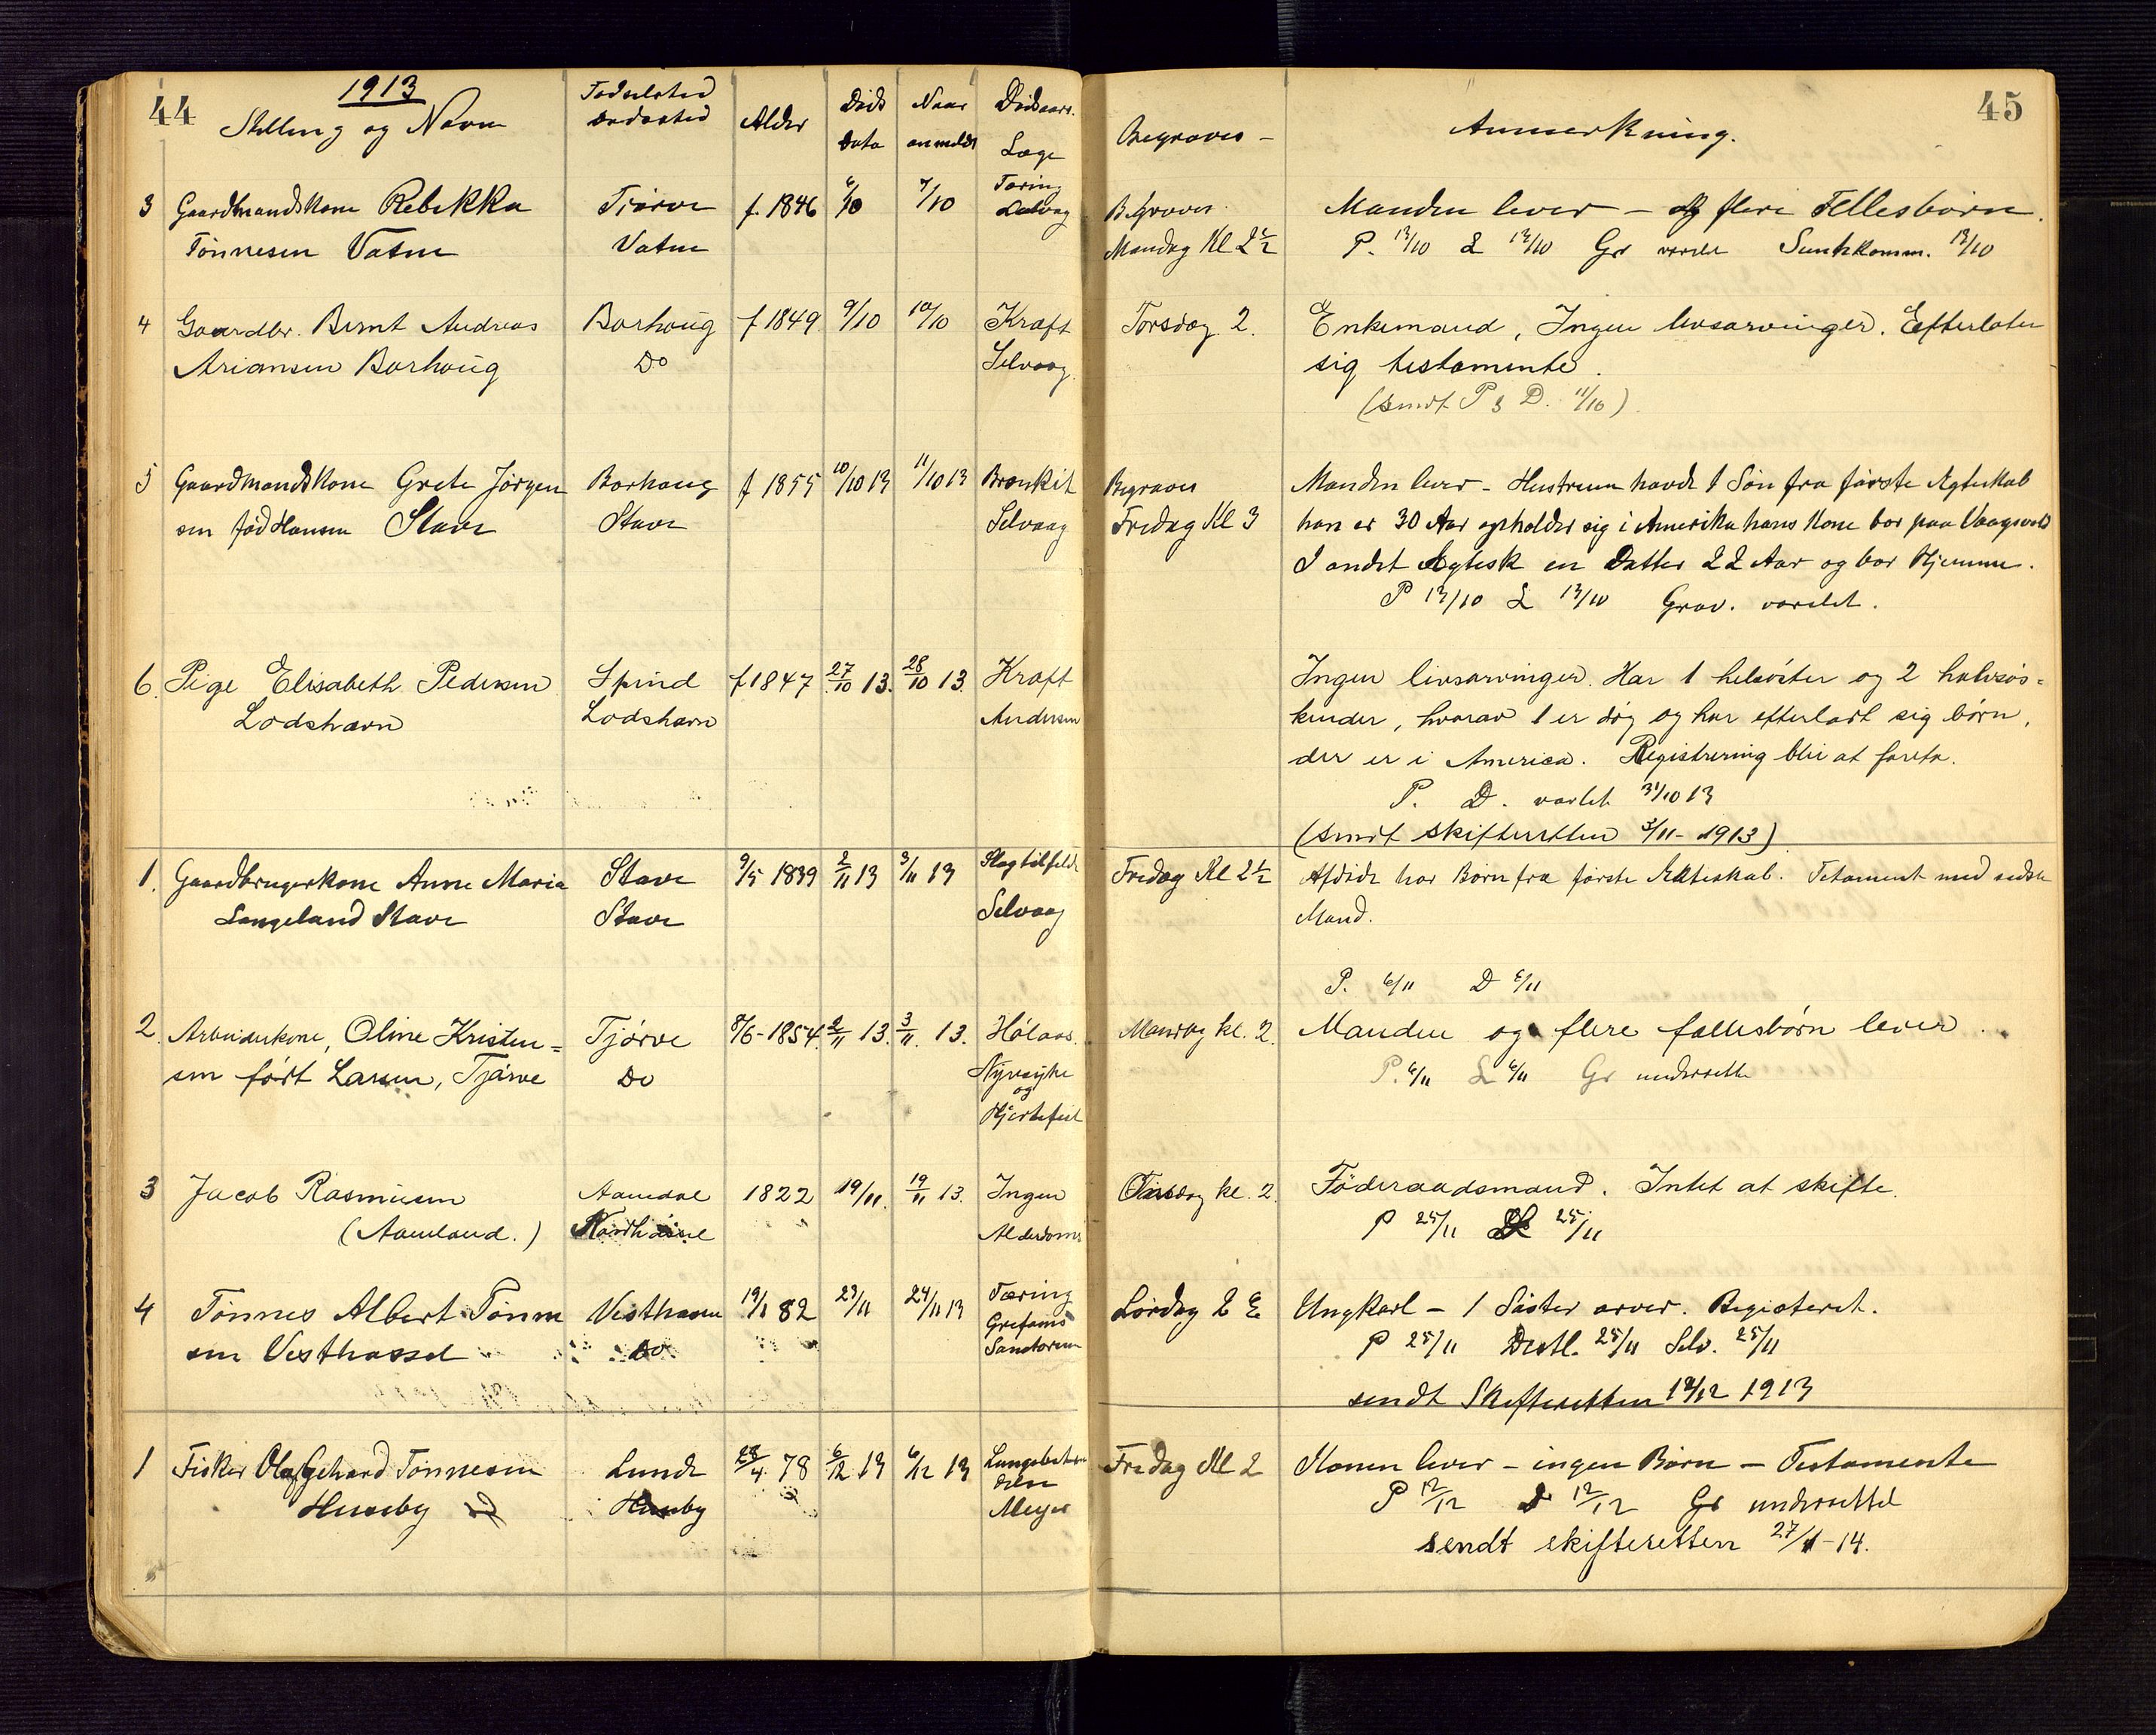 44
1913
Stilling og Navn
Fødselsted
Dødssted
Alder
Døds
Dato
Naar
anmeldt
Dødsaars.
Læge
Begraves –
Anmerkning.
45
3 Gaardmandskone Rebekka Tjørve f. 1846 6/10 7/10 Tæring Begraves Manden lever – og flere Fellesbørn.
Tønnesen Vatne Vatne Selvaag Mandag Kl 2½ P. 13/10 L 13/10 Gr varslet 13/10
4 Gaardbr. Bernt Andreas Borhaug f 1849 9/10 10/10 Kræft Torsdag 2. Enkemand, Ingen livsarvinger. Efterlater
Ariansen Borhaug Do Selvaag sig testamente.
(sendt P 3 D. 11/10)
5 Gaardmandskone Grete Jørgen Borhaug f 1855 10/10 13 11/10 13 Bronkit Begraves Manden lever – Hustruen havde 1 Søn fra første Ægteskab
sen fød Hansen Stave Stave Selvaag Fredag Kl 3 han er 30 Aar opholder sig i Amerika hans Kone bor paa Vaagsvold
I andet Ægtesk en Datter 22 Aar og bor Hjemme.
P 13/10 L 13/10 Grav. varslet.
6. Pige Elisabeth Pedersen Spind f 1847 27/10 13. 28/10 13. Kræft Ingen livsarvinger. Har 1 helsøster og 2 halvsøs=
Lodshavn Lodshavn Andersen kender, hvorav 1 er død og har efterladt sig børn,
der er i America. Registrering blir at foreta.
P. D. varslet 31/10 13
(sendt skifteretten 3/11 - 1913)
1. Gaardbrugerkone Anne Maria Stave 9/5 1839 2/11 13 3/11 13 Slagtilfelde Fredag Kl 2½ Afdøde har Børn fra første Ekteskab. Tetament med sidste
Langeland Stave Stave Selvaag Mand.
P. 6/11 D 6/11
2. Arbeiderkone, Oline Kristen= Tjørve 8/6-1854 2/11 13. 3/11. 13. Hølaas. Mandag kl. 2. Manden og flere fællesbørn lever.
sen født Larsen, Tjørve Do Nyresyke P. 6/11 L 6/11 Gr underrettet
og
Hjertefeil
3 Jacob Rasmusen Aamdal 1822 19/11. 19/11 13. Ingen Tirsdag kl. 2. Føderaadsmand. Intet at skifte.
(Aamland.) Alderdoms P 25/11 25/11
4 Tønnes Albert Tønne Vesthassel 19/1 82 23/11 24/11 13 Tæring Lørdag 2 E Ungkarl – 1 Søster arver. Registeret.
sen Vesthassel Do Grefsens P 25/11 25/11 Selv. 25/11
Sanatorium sendt Skifteretten 19/12 1913
1 Fisker Olaf Gehard Tønnesen Lunde 28/4 78 6/12 13 6/12 13 Lungebeten Fredag Kl 2 Konen lever – ingen Børn – Testamente
Huseby Huseby delse P 12/12 D 12/12 Gr underrettet
Meyer sendt skifteretten 27/1-14.